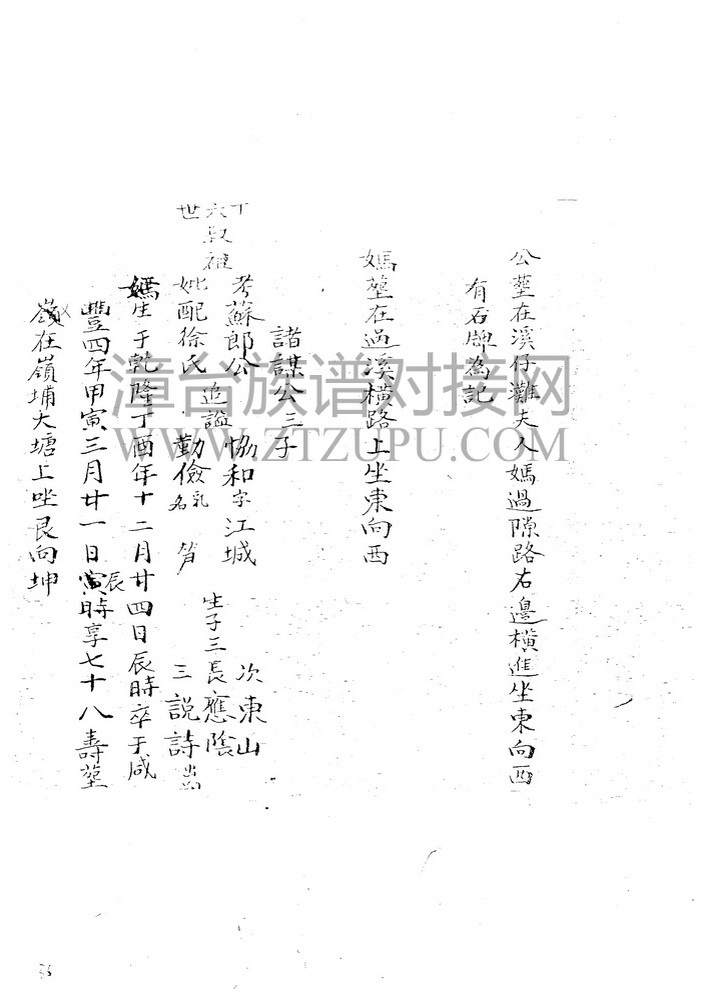 公塋在溪仔灘夫人媽過隙路右邊橫進坐東向西
有石牌為記
媽塋在過溪橫路上坐東向西
諸謀公三子
十六世
叔祖
考蘇郎公
妣配徐氏
追謚
協和字江城
勤儉乳名
生子三長應陰
次東山
三說詩
媽生于乾隆丁酉年十二月廿四日辰時卒于咸
豐四年甲寅三月廿一日寅辰時享七十八壽塋
在嶺埔大塘上坐艮向坤
漳台族谱对接网
WWW.ZTZUPU.COM